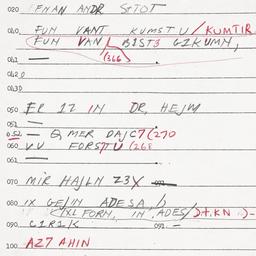 020 ENAN ANDR STTOT
030 FUN VANT KUMSTU/KUMTIR
FUN VAN BIST3 GIKUMN,
041 — (366
042
043
050 ER IZ IN DR, HEJM
051 —
052 — Q MER DAJC7(270
060 VU FORSTU (268
061 —
070 MIR HAJLN Z3X
080 IX GEJN ADESA,
(IXL FORN, IN, ADES/
090 C1R1K 091 —
100 AZ7 AHIN